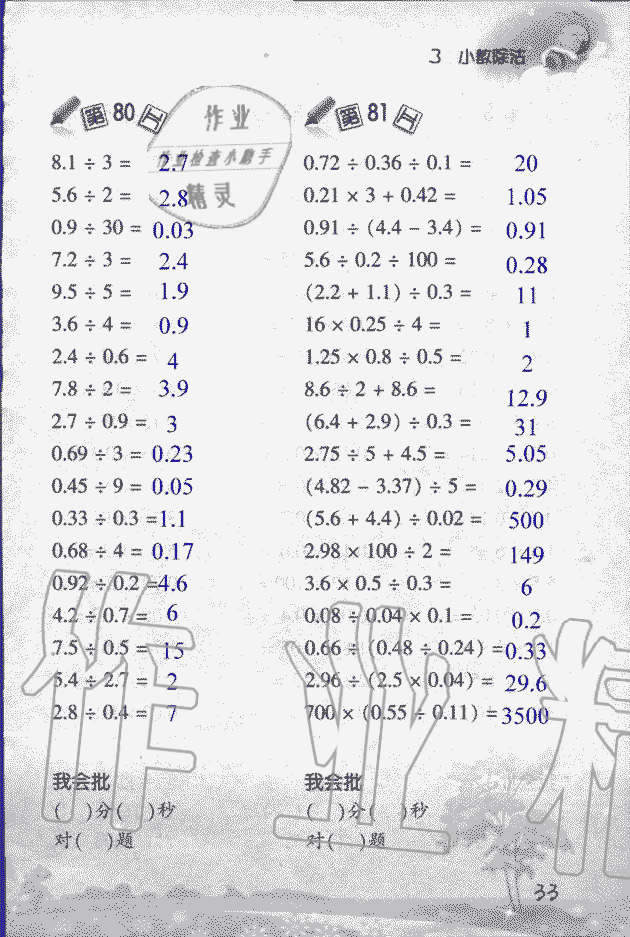 3 小数除法
第 80 工
8.1 ÷ 3 = 2.7
5.6 ÷ 2 = 2.8
0.9 ÷ 30 = 0.03
7.2 ÷ 3 = 2.4
9.5 ÷ 5 = 1.9
3.6 ÷ 4 = 0.9
2.4 ÷ 0.6 = 4
7.8 ÷ 2 = 3.9
2.7 ÷ 0.9 = 3
0.69 ÷ 3 = 0.23
0.45 ÷ 9 = 0.05
0.33 ÷ 0.3 = 1.1
0.68 ÷ 4 = 0.17
0.92 ÷ 0.2 = 4.6
4.2 ÷ 0.7 = 6
7.5 ÷ 0.5 = 15
5.4 ÷ 2.7 = 2
2.8 ÷ 0.4 = 7
我会批
( )分( )秒
对( )题
第 81 工
0.72 ÷ 0.36 ÷ 0.1 = 20
0.21 × 3 + 0.42 = 1.05
0.91 ÷ (4.4 − 3.4) = 0.91
5.6 ÷ 0.2 ÷ 100 = 0.28
(2.2 + 1.1) ÷ 0.3 = 11
16 × 0.25 ÷ 4 = 1
1.25 × 0.8 ÷ 0.5 = 2
8.6 ÷ 2 + 8.6 = 12.9
(6.4 + 2.9) ÷ 0.3 = 31
2.75 ÷ 5 + 4.5 = 5.05
(4.82 − 3.37) ÷ 5 = 0.29
(5.6 + 4.4) ÷ 0.02 = 500
2.98 × 100 ÷ 2 = 149
3.6 × 0.5 ÷ 0.3 = 6
0.08 ÷ 0.04 × 0.1 = 0.2
0.66 ÷ (0.48 ÷ 0.24) = 0.33
2.96 ÷ (2.5 × 0.04) = 29.6
700 × (0.55 ÷ 0.11) = 3500
我会批
( )分( )秒
对( )题
作业
作业检查小助手
精灵
作业精
33